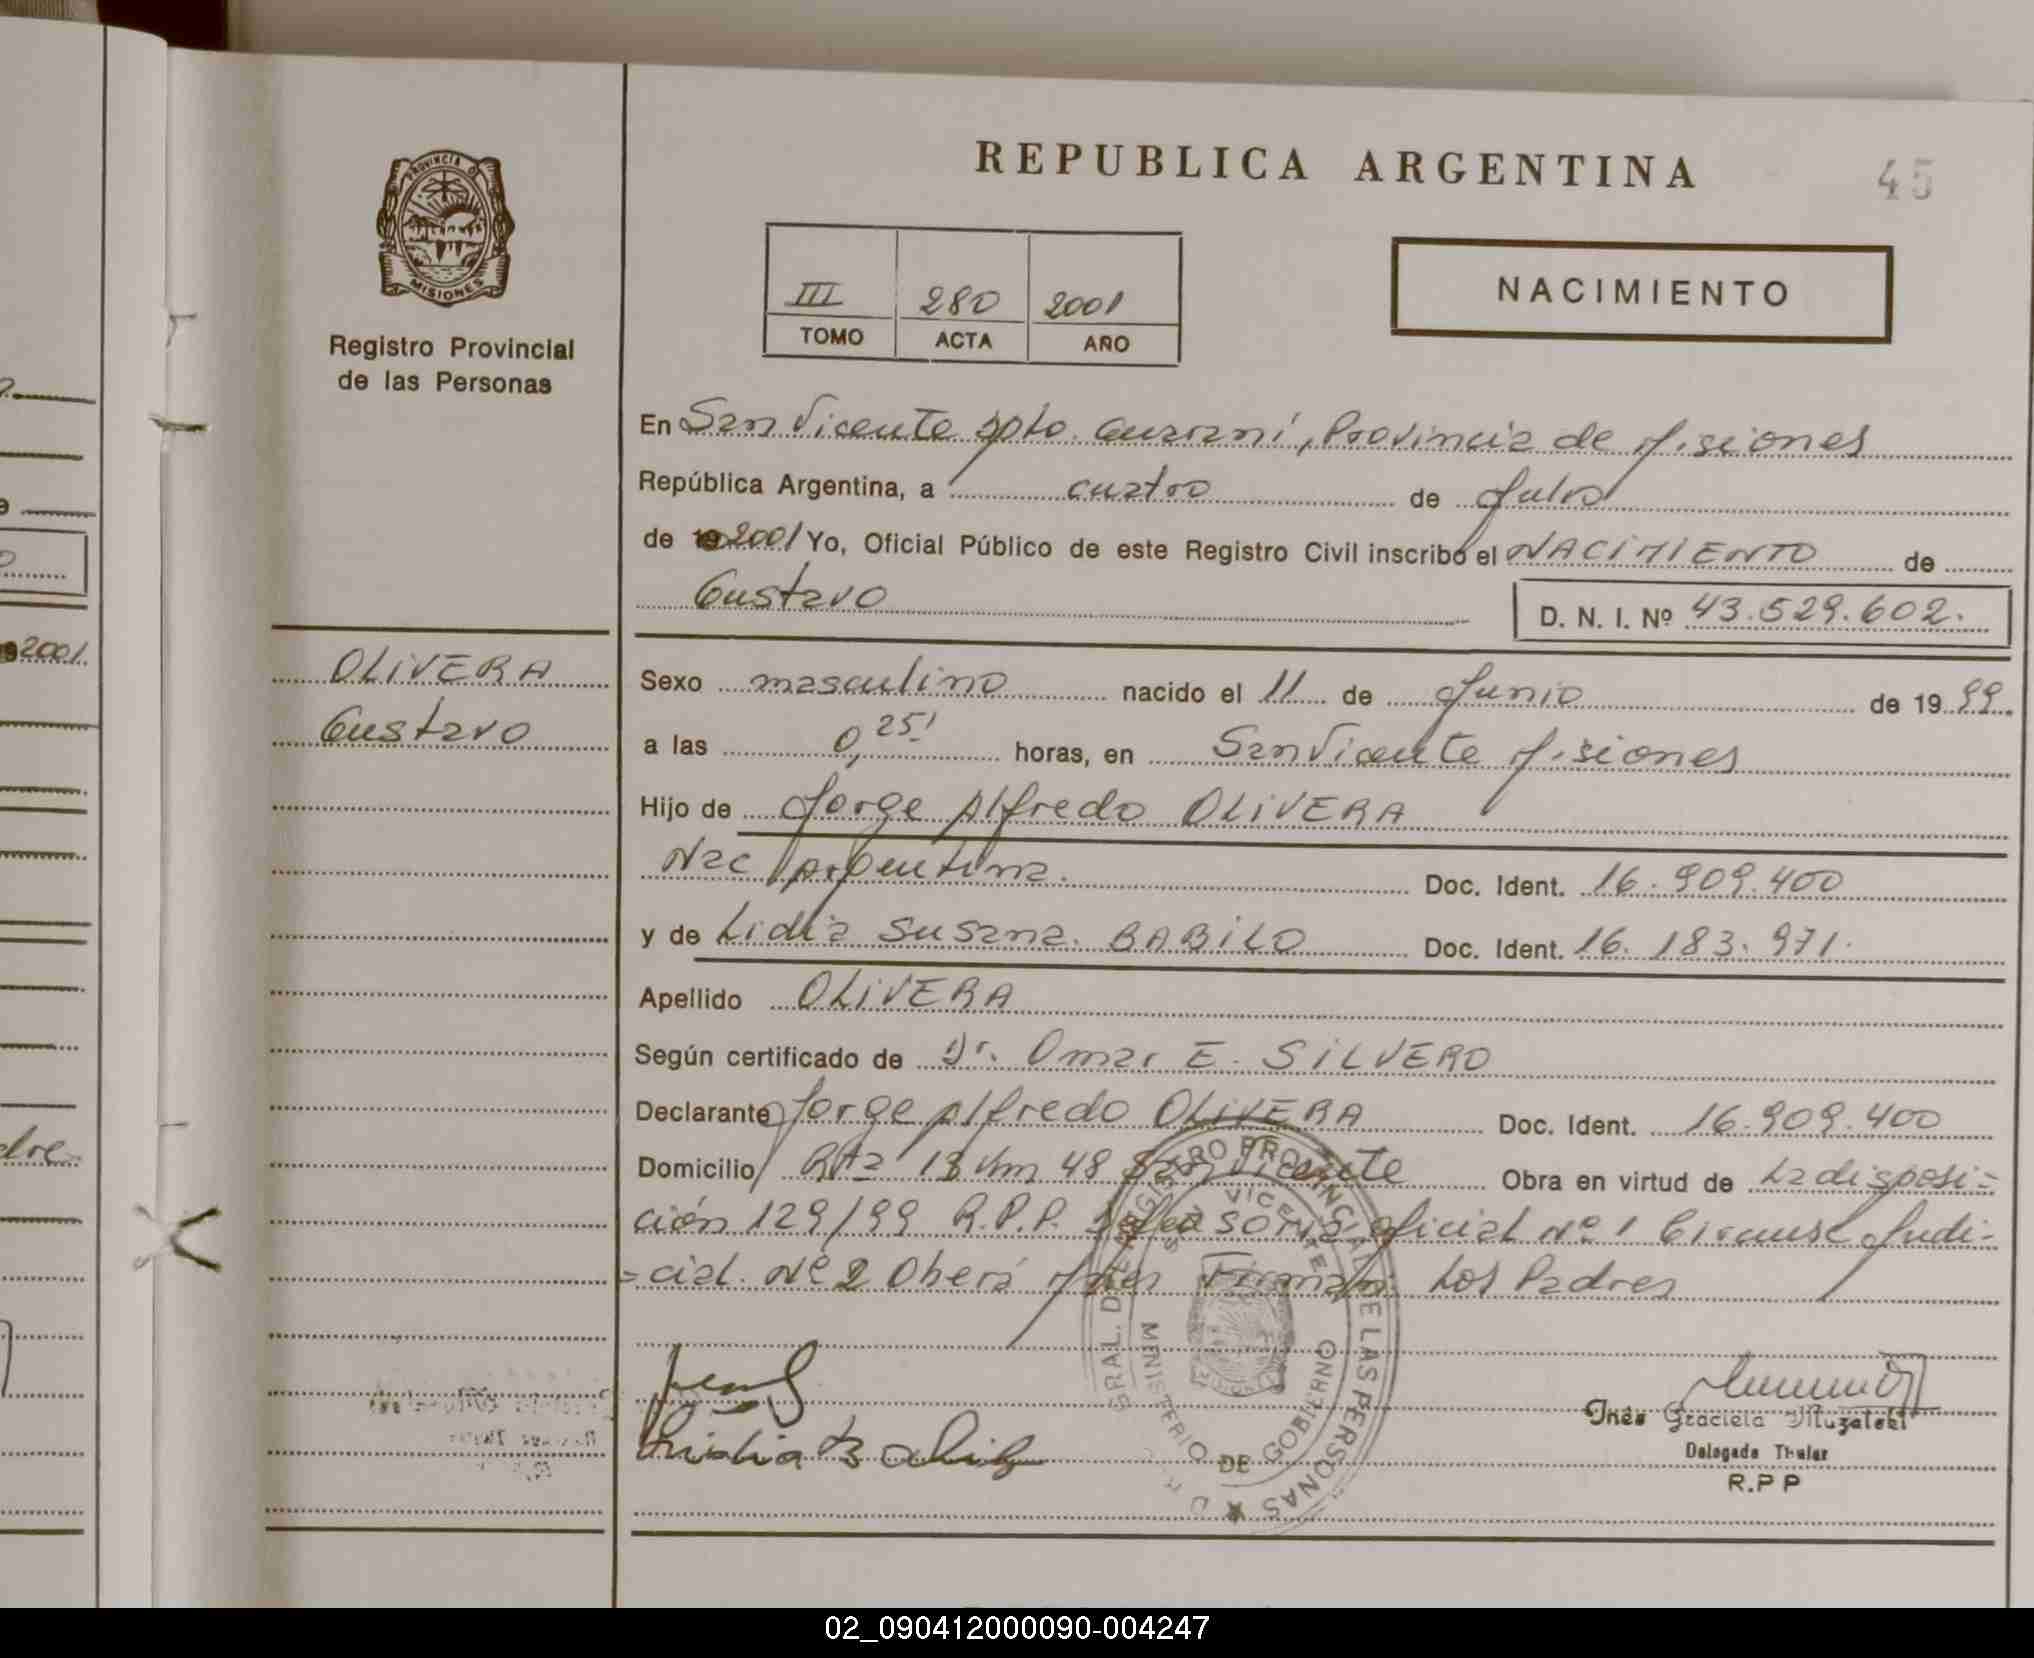 REPUBLICA ARGENTINA
45
PROVINCIA D
MISIONES
Registro Provincial
de las Personas
III 280 2001
TOMO ACTA AÑO
NACIMIENTO
En San Vicente Dpto. Guaraní, Provincia de Misiones
República Argentina, a cuatro de Julio
de 19 2001 Yo, Oficial Público de este Registro Civil inscribo el NACIMIENTO de
Gustavo D. N. I. Nº 43.529.602.
OLIVERA
Gustavo
Sexo masculino nacido el 11 de Junio de 1999.
a las 0,25' horas, en San Vicente Misiones
Hijo de Jorge Alfredo OLIVERA
Nac Argentina. Doc. Ident. 16.909.400
y de Lidia Susana BABILO Doc. Ident. 16.183.971.
Apellido OLIVERA
Según certificado de Dr. Omar E. SILVERO
Declarante Jorge Alfredo OLIVERA Doc. Ident. 16.909.400
Domicilio Rta 13 Km 48 San Vicente Obra en virtud de La disposi=
ción 129/99 R.P.P. oficial Nº 1 Circunsc Judi=
=cial. Nº 2 Oberá Mnes Firman: Los Padres
GRAL. DEL REGISTRO PROVINCIAL DE LAS PERSONAS
SAN VICENTE
MINISTERIO DE GOBIERNO
Inés Graciela Muzalski
Delegada Titular
R.P P
2001
dre
02_090412000090-004247